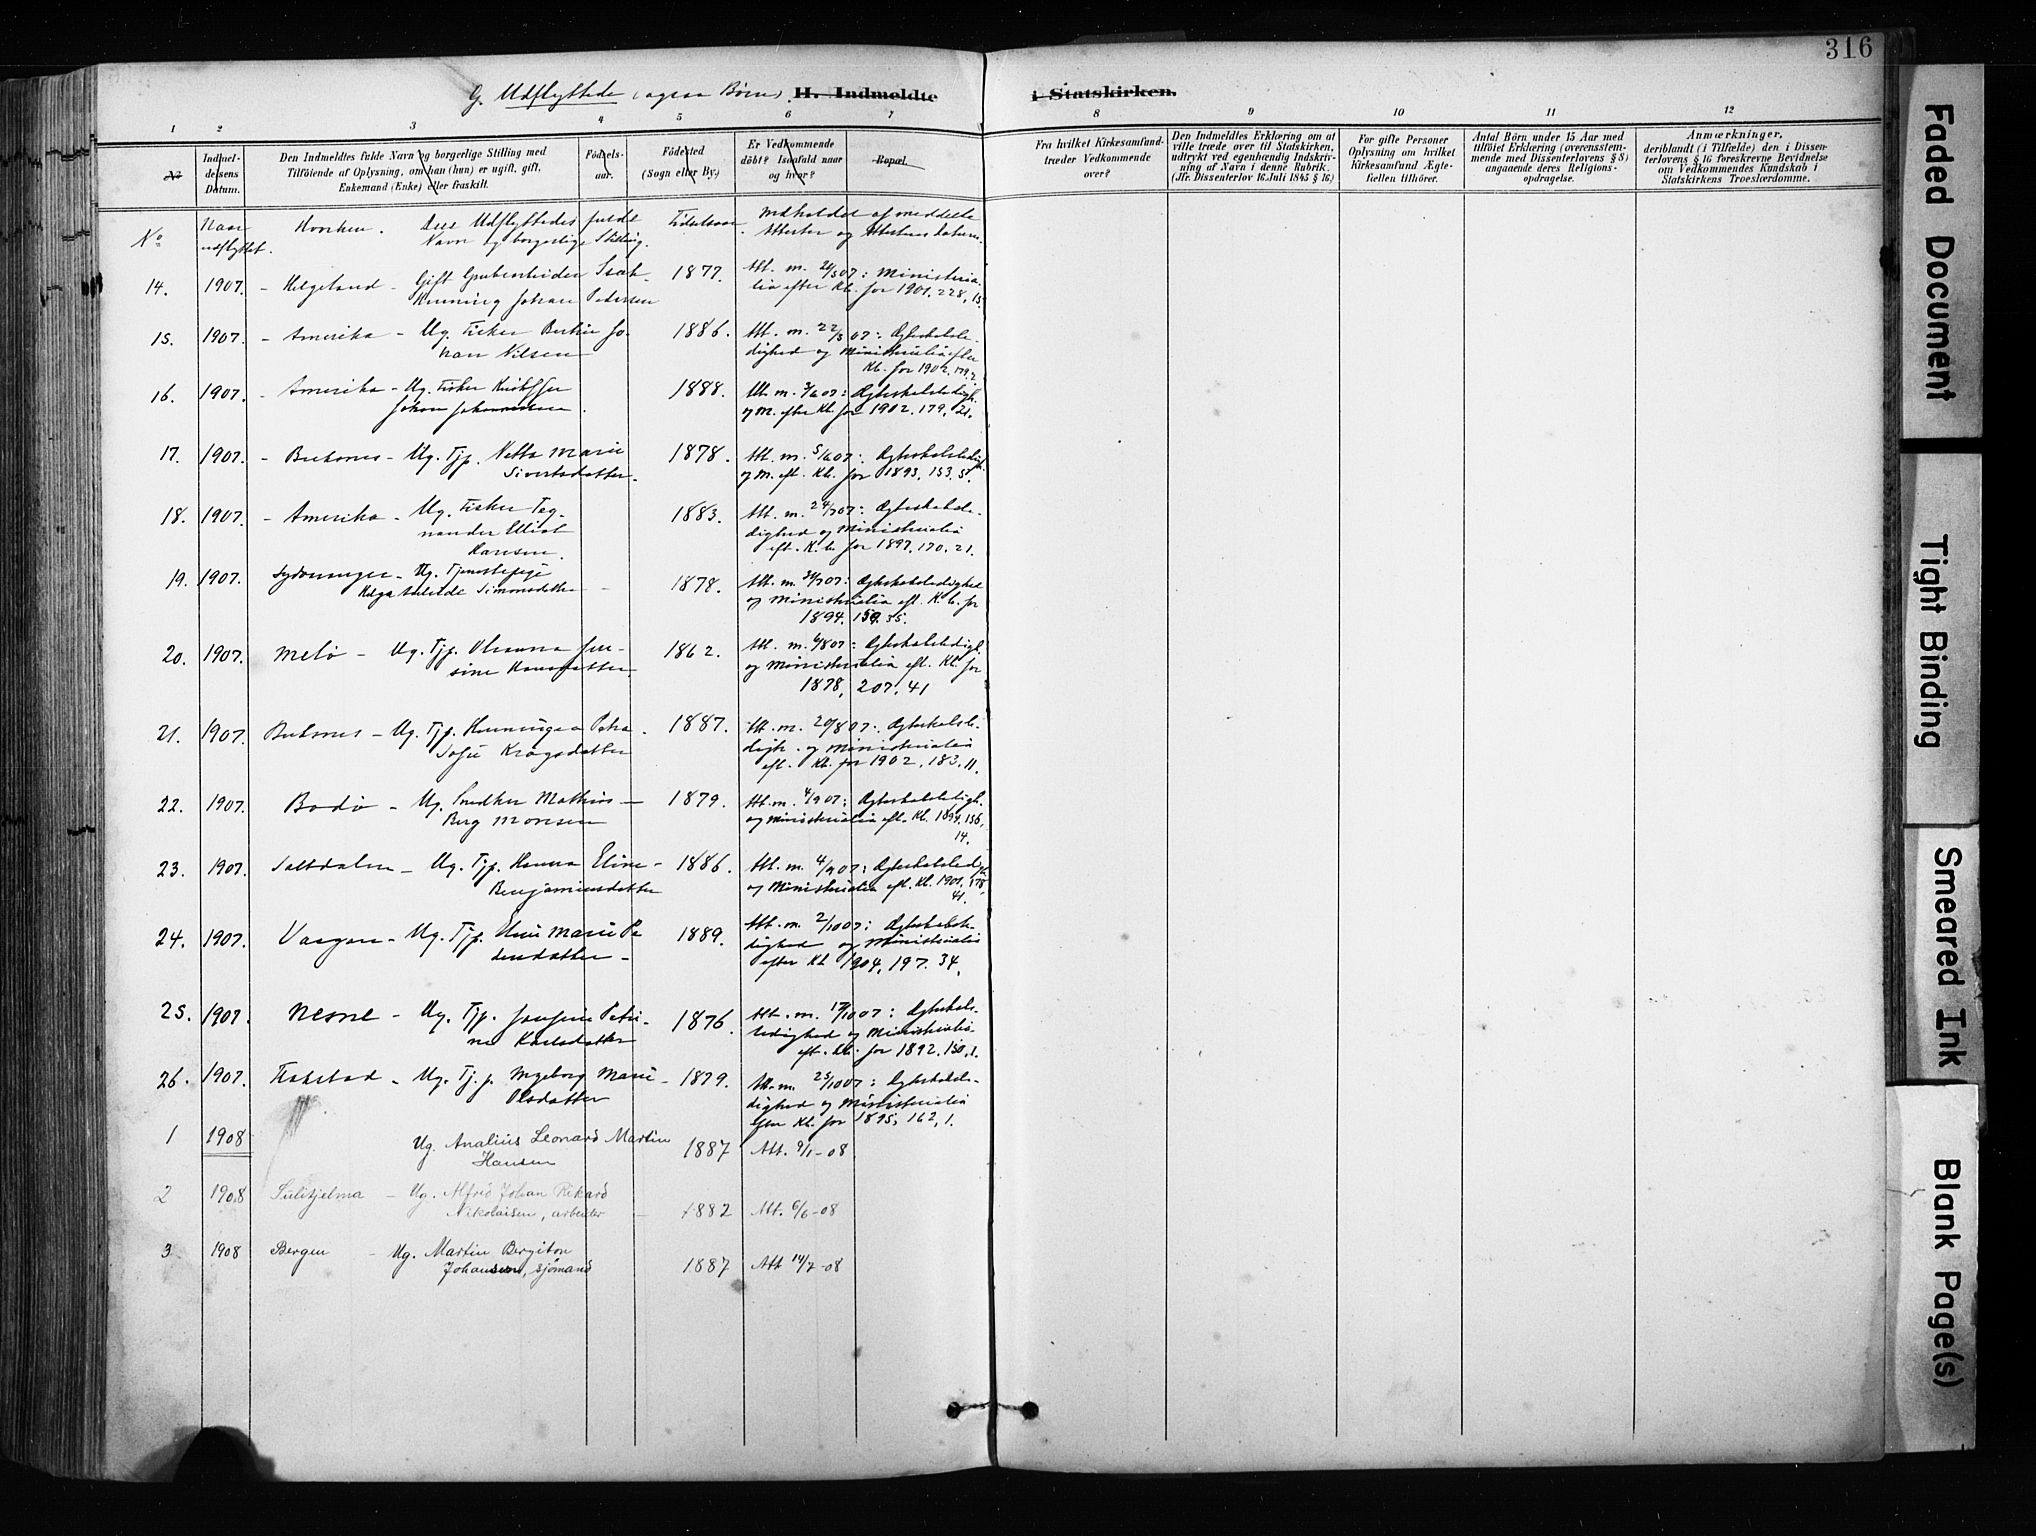 316
G. Udflyttede (ogsaa Børn). H. Indmeldte i Statskirken.
1 2 3 4 5 6 7 8 9 10 11 12
No
Indmel-
delsens
Datum.
Den Indmeldtes fulde Navn og borgerlige Stilling med
Tilföiende af Oplysning, om han (hun) er ugift, gift,
Enkemand (Enke) eller fraskilt.
Födsels-
aar.
Födested
(Sogn eller By.)
Er Vedkommende
döbt? Isaafald naar
og hvor?
Bopæl.
Fra hvilket Kirkesamfund
træder Vedkommende
over?
Den Indmeldtes Erklæring om at
ville træde over til Statskirken,
udtrykt ved egenhændig Indskriv-
ning af Navn i denne Rubrik.
(Jfr. Dissenterlov 16 Juli 1845 § 16)
For gifte Personer
Oplysning om hvilket
Kirkesamfund Ægte-
fællen tilhörer.
Antal Börn under 15 Aar med
tilföiet Erklæring (overensstem-
mende med Dissenterlovens § 8)
angaaende deres Religions-
opdragelse.
Anmærkninger,
deriblandt (i Tilfælde) den i Dissen-
terlovens § 16 foreskrevne Bevidnelse
om Vedkommendes Kundskab i
Statskirkens Troeslærdomme.
No Naar
udflyttet.
Hvorhen. Den Udflyttedes fulde
Navn og borgerlige Stilling.
Fødselsaar.
Indholdet af meddelte
Attester og Attestens datum.
14. 1907. - Helgeland - Gift Grubearbeider Isak
Henning Johan Petersen
1877.
Att. m. 07: Ministeria-
lia efter Kb. for 1901, 228, 15
15. 1907. - Amerika - Ug. Fisker Jo-
han Nilsen
1886.
Att. m. 22/5 07: Ægteskabsle-
dighed og Ministerialia efter
Kb. for 1902, 179, 2.
16. 1907. - Amerika - Ug. Fisker Kristoffer
Johan Johannessen.
1888.
Att. m. 3/6 07: Ægteskabsledigh.
og M. efter Kb. for 1902, 179, 21.
17. 1907. - Buksnes - Ug. Tjp. Netta Marie
Sivertsdatter.
1878.
Att. m. 5/6 07: Ægteskabsledigh.
og M. eft. Kb. for 1893, 153, 5.
18. 1907. - Amerika - Ug. Fisker Teg-
nander Elliot
Hansen.
1883.
Att. m. 24/7 07: Ægteskabsle-
dighed og Ministerialia
eft. K.b. for 1897, 170, 21.
19. 1907. Sydvaranger - Ug. Tjenestepige
Helga Simonsdatter -
1878.
Att. m. 07: Ægteskabsledighed
og Ministerialia eft. K.b. for
1894, 159, 35.
20. 1907. Melö - Ug. Tjp. Oleanna Jen-
sine Hansdatter.
1862.
Att. m. 6/8 07: Ægteskabsledigh.
og Ministerialia eft. Kb. for
1878, 207, 41
21. 1907. Buksnes - Ug. Tjp. Henningea Petra
Sofie Kragsdatter
1887.
Att. m. 20/8 07: Ægteskabsle-
digh. og Ministerialia
eft. Kb. for 1902, 183, 11.
22. 1907. Bodö - Ug. Snedker Mathias -
Berg Monsen
1879.
Att. m. 4/9 07: Ægteskabsledigh.
og Ministerialia eft. Kb. 1894, 156,
14.
23. 1907. Saltdalen - Ug. Tjp. Hanna Eline -
Benjaminsdatter
1886.
Att. m. 4/9 07: Ægteskabsledigh.
og Ministerialia eft. Kb. 1901, 178,
41.
24. 1907. Vaagan - Ug. Tjp. Marie Pe
dersdatter -
1889.
Att. m. 2/10 07: Ægteskabsle-
dighed og Ministerialia
efter Kb 1904, 197, 34.
25. 1907. Nesne - Ug. Tjp. Josefine Petri-
ne Karlsdatter
1876.
Att. m. 17/10 07: Ægteskabs-
ledighed og Ministerialia
eft. Kb. for 1892, 150, 1.
26. 1907. Flakstad - Ug. Tj.p. Ingeborg Marie -
Olsdatter
1879.
Att. m. 25/10 07: Ægteskabsle-
dighed og Ministerialia
efter Kb. for 1895, 162, 1.
1 1908 Ug. Analius Leonard Martin
Hansen
1887 Att. 9/1-08
2 1908 Sulitjelma - Ug. Alfred Johan Rikard
Nikolaisen, arbeider -
1882 Att. 6/6-08
3 1908 Bergen - Ug. Martin Bergiton
Johansen, sjømand
1887 Att 14/7-08
Faded Document
Tight Binding
Smeared Ink
Blank Page(s)